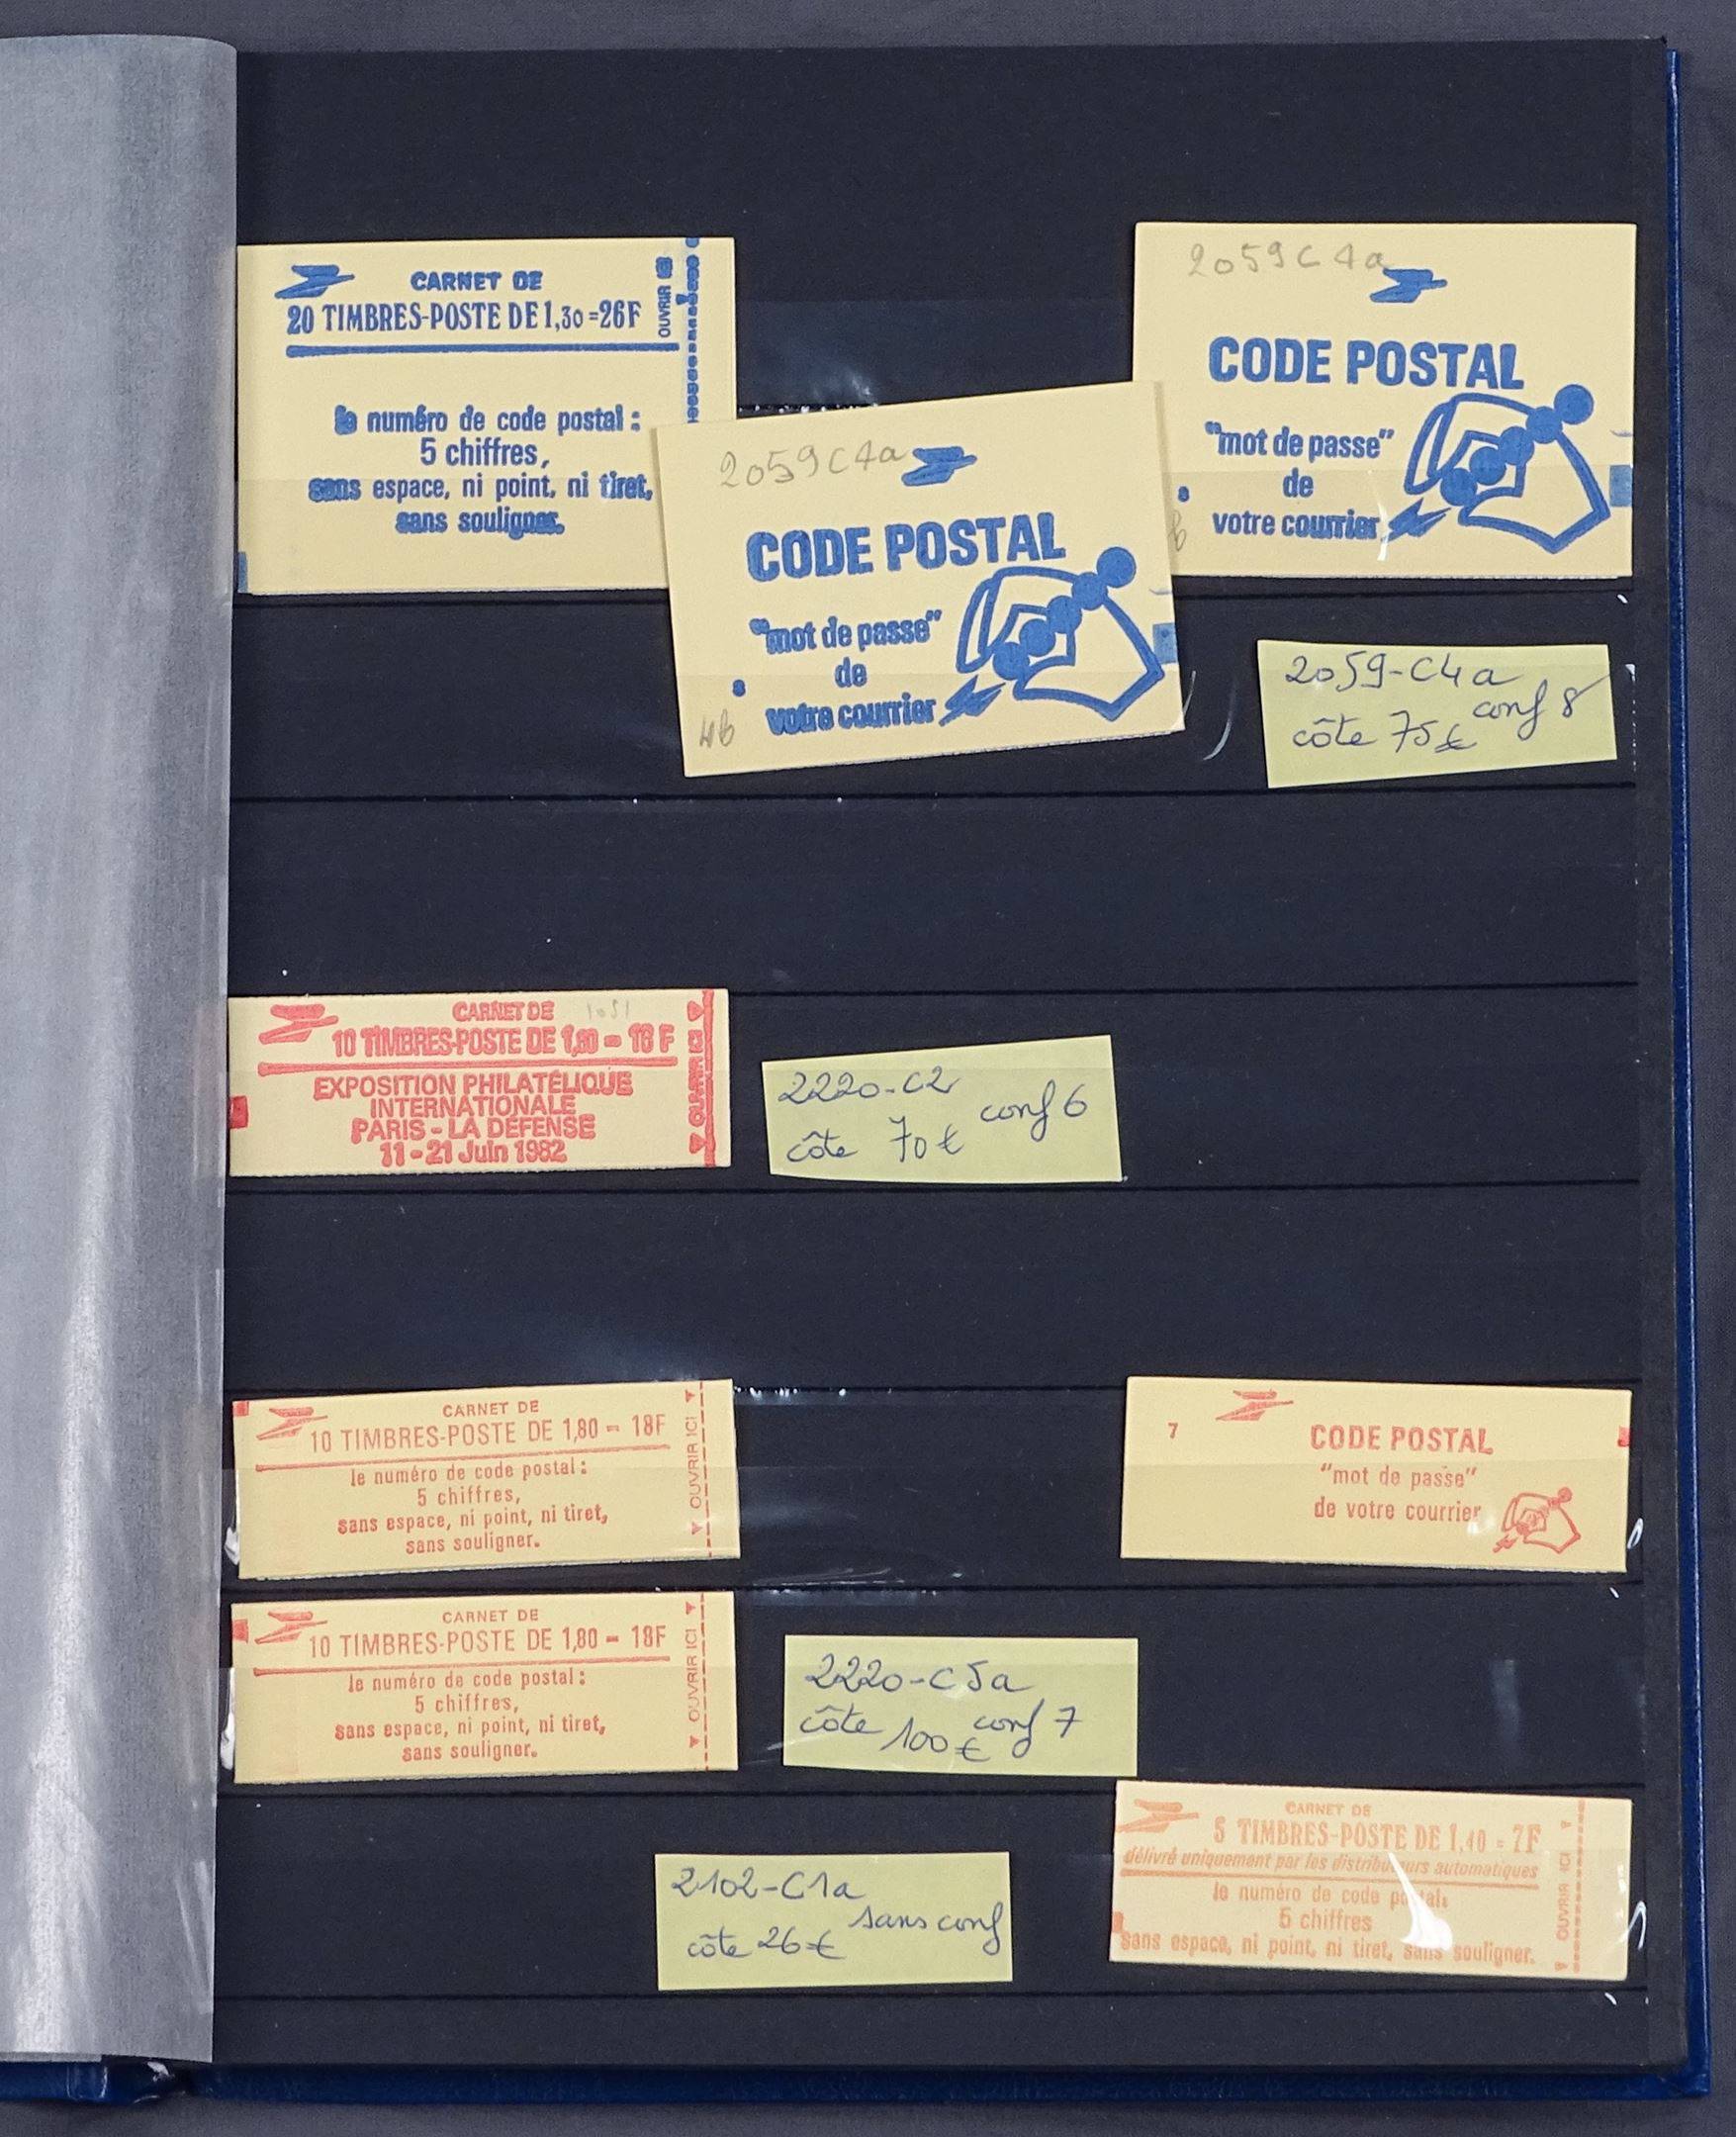 CARNET DE
20 TIMBRES-POSTE DE 1,30 =26F
OUVRIR ICI
le numéro de code postal :
5 chiffres,
sans espace, ni point, ni tiret,
sans souligner.
2059C4a
CODE POSTAL
"mot de passe"
de
8
votre courrier
2059C4a
CODE POSTAL
"mot de passe"
de
8
votre courrier
4b
2059-C4a
conf 8
côte 75€
CARNET DE 1051
10 TIMBRES-POSTE DE 1,60 = 16 F
EXPOSITION PHILATÉLIQUE
INTERNATIONALE
PARIS - LA DÉFENSE
11 - 21 Juin 1982
OUVRIR ICI
2220-C2
conf 6
côte 70€
CARNET DE
10 TIMBRES-POSTE DE 1,80 = 18F
le numéro de code postal :
5 chiffres,
sans espace, ni point, ni tiret,
sans souligner.
OUVRIR ICI
7
CODE POSTAL
"mot de passe"
de votre courrier
CARNET DE
10 TIMBRES-POSTE DE 1,80 = 18F
le numéro de code postal :
5 chiffres,
sans espace, ni point, ni tiret,
sans souligner.
OUVRIR ICI
2220-C5a
côte 100€ conf 7
2102-C1a
sans conf
côte 26€
CARNET DE
5 TIMBRES-POSTE DE 1,40 = 7F
délivré uniquement par les distributeurs automatiques
le numéro de code postal:
5 chiffres
sans espace, ni point, ni tiret, sans souligner.
OUVRIR ICI